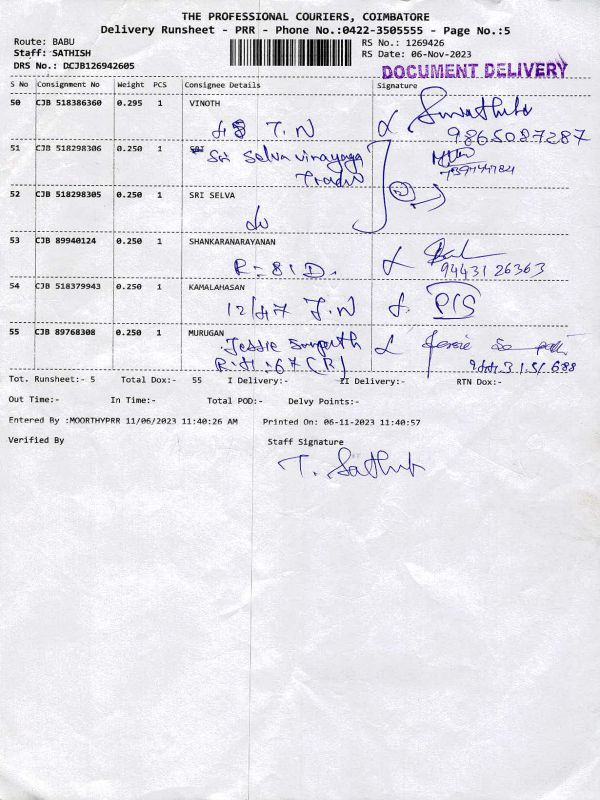 THE PROFESSIONAL COURIERS, COIMBATORE
Delivery Runsheet - PRR - Phone No.:0422-3505555 - Page No.:5
Route: BABU
RS No.: 1269426
Staff: SATHISH
RS Date: 06-Nov-2023
DRS No.: DCJB126942605
DOCUMENT DELIVERY
S No Consignment No Weight PCS Consignee Details Signature
50 CJB 518386360 0.295 1 VINOTH
T.N
9865087287
51 CJB 518298306 0.250 1
Sri Selva vinayaga
Trader
52 CJB 518298305 0.250 1 SRI SELVA
do
53 CJB 89940124 0.250 1 SHANKARANARAYANAN
R=81D.
94431 26363
54 CJB 518379943 0.250 1 KAMALAHASAN
12/47 J.N
55 CJB 89768308 0.250 1 MURUGAN
Jessie
R.H:67(R)
Tot. Runsheet:- 5 Total Dox:- 55 I Delivery:- II Delivery:- RTN Dox:-
Out Time:- In Time:- Total POD:- Delvy Points:-
Entered By :MOORTHYPRR 11/06/2023 11:40:26 AM Printed On: 06-11-2023 11:40:57
Verified By Staff Signature